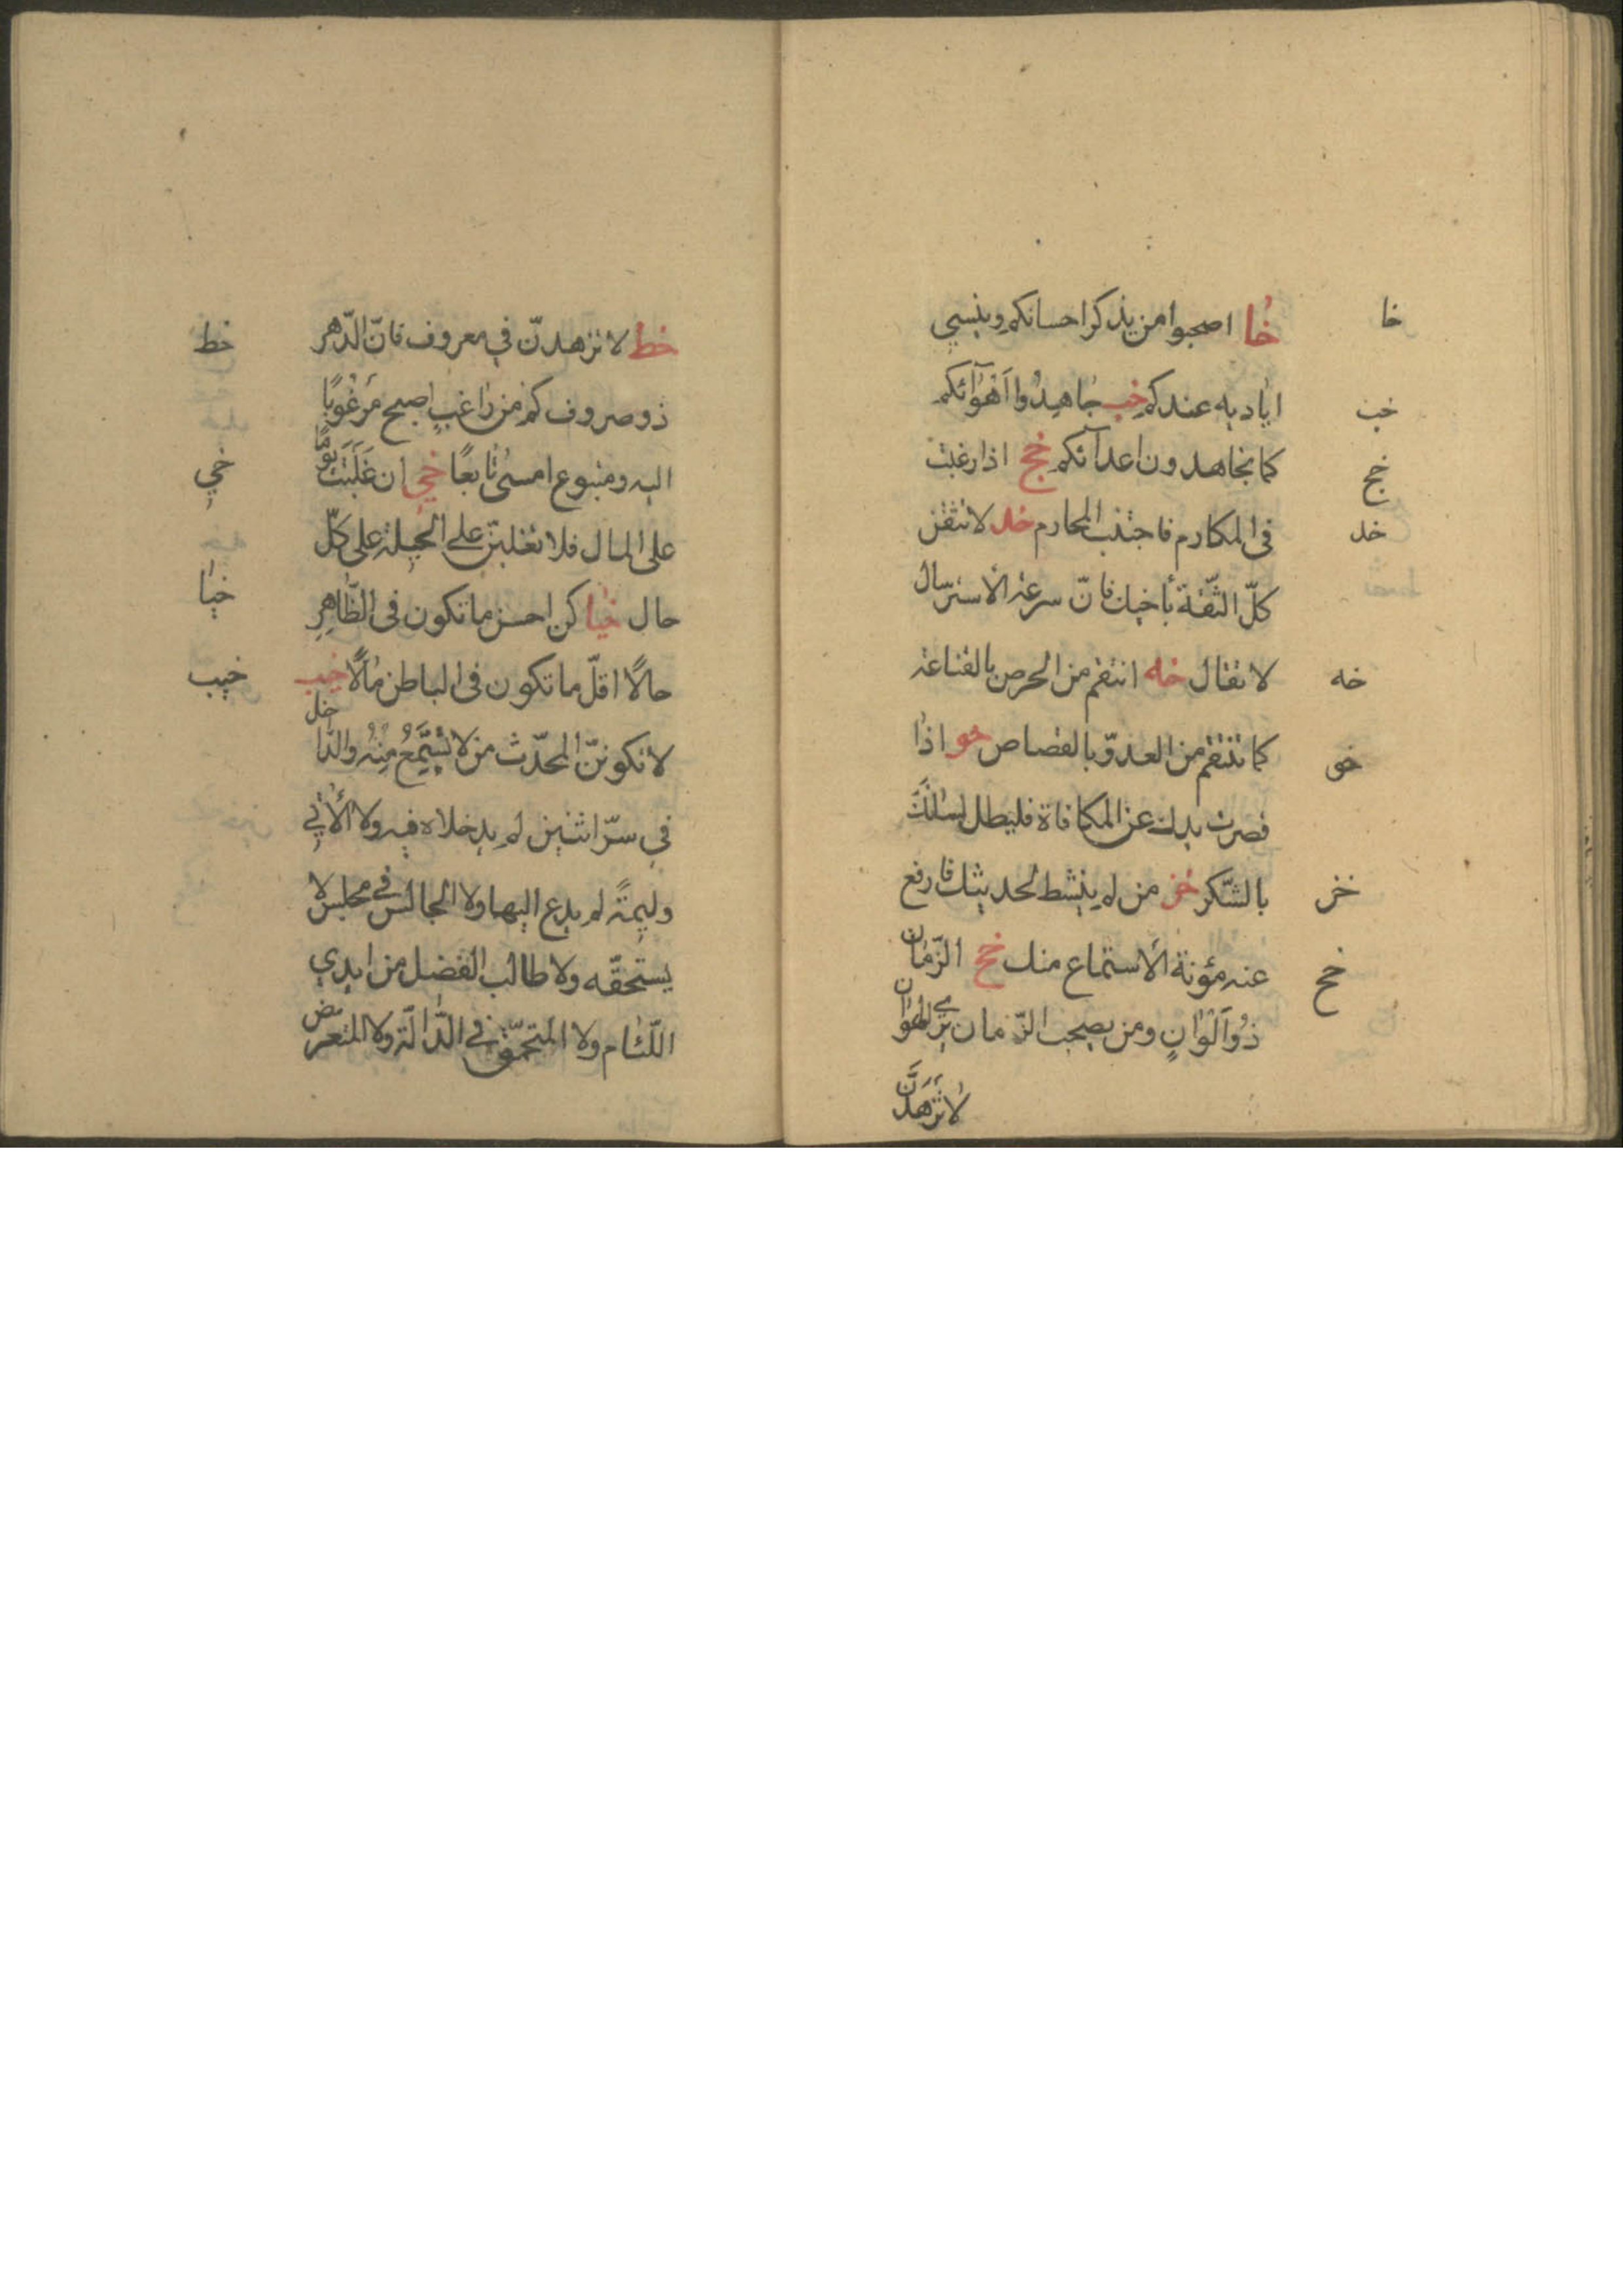 خا
خُا اصحبوا من يذكر احسانكم وينسي
اياديه عندكم خب جٰاهِدُوا اَهْوٰآئكم
خب
كما تجاهدون اعدآئكم خج اذا رغبت
خج
فى المكارم فاجتنب المحارم خد لا تثقن
خد
كلّ الثّقة بأخيك فانّ سرعة الأسترسال
لا تقال خه انتقم من الحرص بالقناعة
خه
كما تنتقم من العدوّ بالقصاص خو اذٰا
خو
قصرت يدك عن المكافاة فليطل لسٰانكَ
بالشّكر خز من لم ينشط لحديثك فارفع
خز
عنه مؤنة الأستماع منك خح الزّمٰان
خح
ذُو اَلْوٰانٍ ومن يصحب الزّمان يَرَي الهوٰان
لاٰ تَزْهَدَنَّ
خط لا تزهدنّ في معروف فانّ الدّهر
خط
ذو صروف كم من رٰاغبٍ اصبح مَرْغُوبًا
اليه ومتبوع امسىٰ تٰابعًا خي ان غَلَبَتَ يَومًا
خي
على المال فلا تغلبنّ علي الحيلة على كلّ
حال خيا كن احسن ما تكون فى الظّاهِرِ
خيا
حالاً اقلّ ما تكون فى الباطن مٰالاً خيب
خيب
لا تكوننّ المحدّث من لا يَسْتَمِعُ مِنْهُ والدّاخل
في سرّ اثنين لم يدخلاه فيه ولا الأٰتي
وليمةً لم يدع اليها ولا الجالس في مجلس لا
يستحقّه ولا طالب الفضل من ايدي
اللّئام ولا المتحمّق في الدّالّة ولا المتعرّض